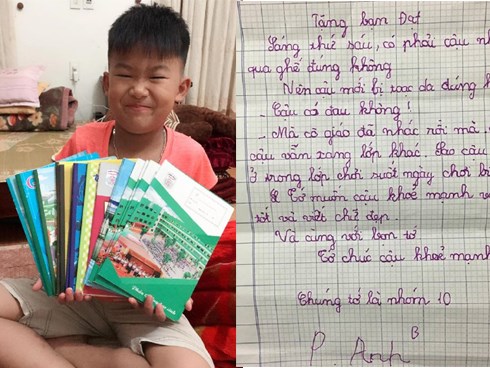 Tặng bạn Đạt
Sáng thứ sáu, có phải cậu n
qua ghế đúng không
Nên cậu mới bị xoạc da đúng k
- Cậu có đau không!
- Mà cô giáo đã nhắc rồi mà
cậu vẫn xang lớp khác Sao cậu
ở trong lớp chơi suốt ngày chơi b
& Tớ muốn cậu khoẻ mạnh v
tốt và viết chữ đẹp.
Và cùng với bọn tớ
Tớ chúc cậu khoẻ mạnh
Chúng tớ là nhóm 10
B
P. Anh